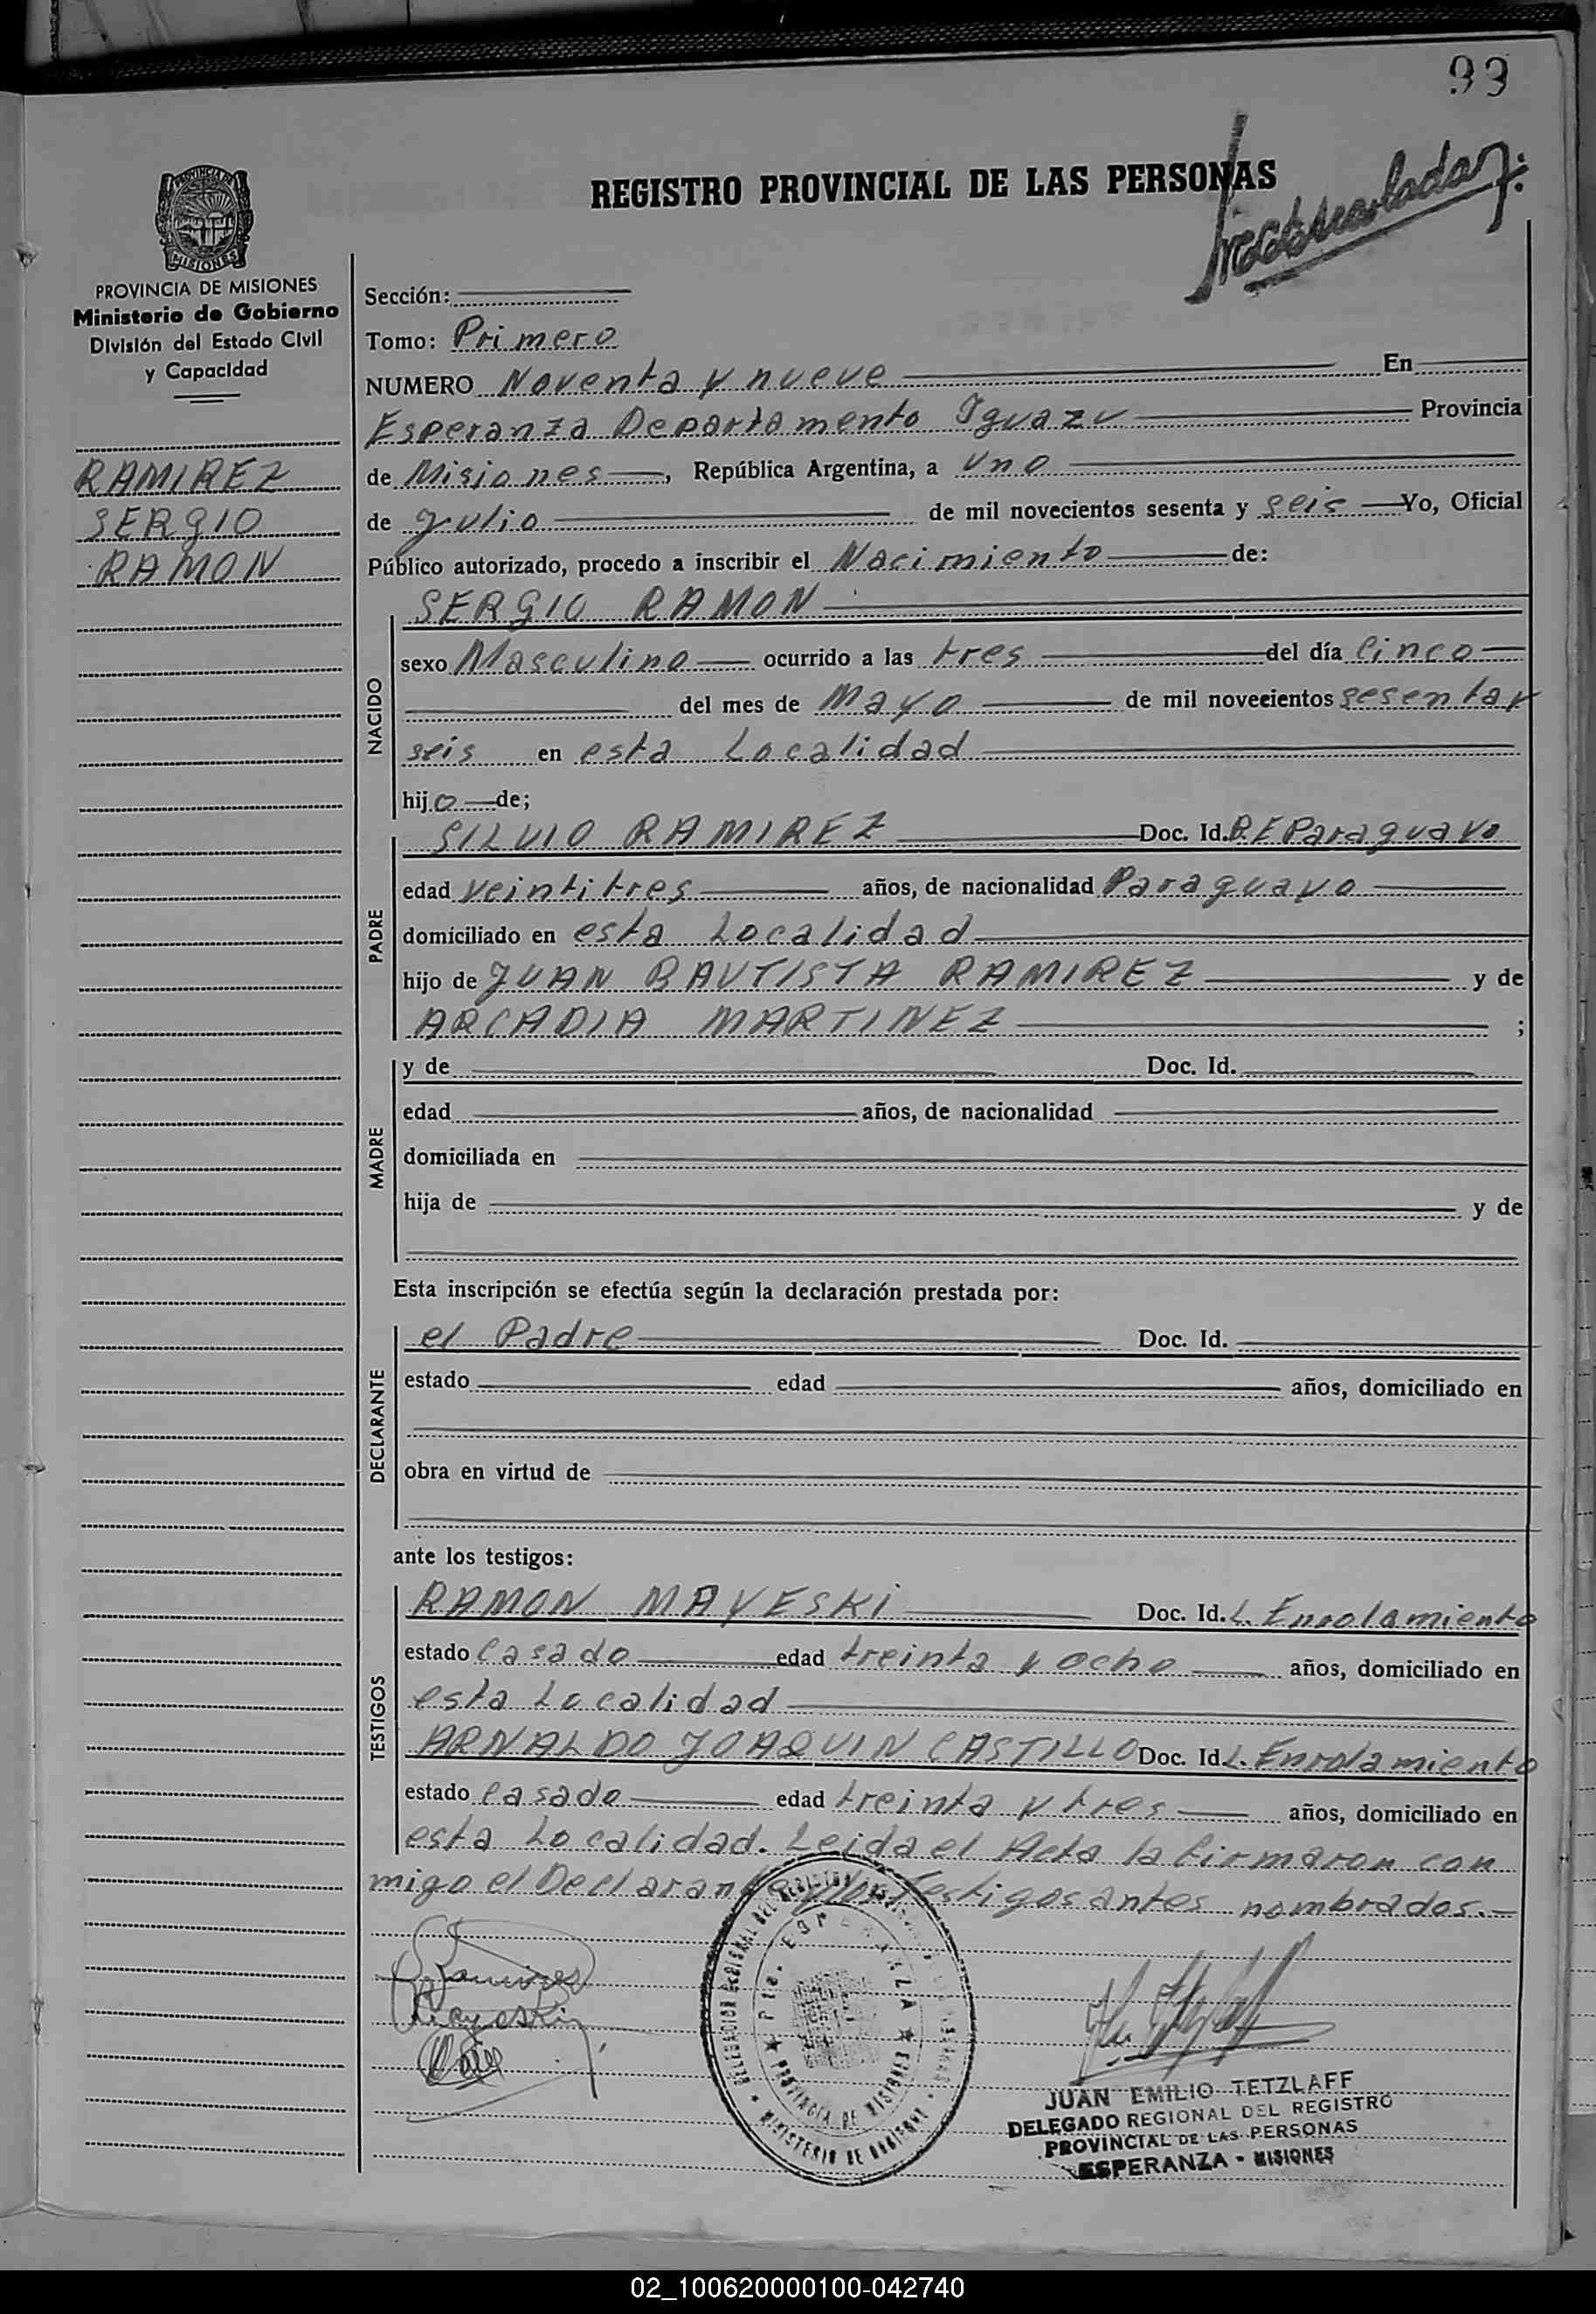 99
REGISTRO PROVINCIAL DE LAS PERSONAS
PROVINCIA DE MISIONES
MISIONES
PROVINCIA DE MISIONES
Ministerio de Gobierno
División del Estado Civil
y Capacidad
RAMIREZ
SERGIO
RAMON
Sección:
Tomo: Primero
NUMERO Noventa y nueve En
Esperanza Departamento Iguazu Provincia
de Misiones, República Argentina, a uno
de Julio de mil novecientos sesenta y seis Yo, Oficial
Público autorizado, procedo a inscribir el Nacimiento de:
NACIDO
SERGIO RAMON
sexo Masculino ocurrido a las tres del día Cinco
del mes de Mayo de mil novecientos sesenta y
seis en esta Localidad
hijo de;
PADRE
SILVIO RAMIREZ Doc. Id. Paraguayo
edad veintitres años, de nacionalidad Paraguayo
domiciliado en esta Localidad
hijo de JUAN BAUTISTA RAMIREZ y de
ARCADIA MARTINEZ ;
MADRE
y de Doc. Id.
edad años, de nacionalidad
domiciliada en
hija de y de
Esta inscripción se efectúa según la declaración prestada por:
DECLARANTE
el Padre Doc. Id.
estado edad años, domiciliado en
obra en virtud de
ante los testigos:
TESTIGOS
RAMON MAYESKI Doc. Id. L. Enrolamiento
estado Casado edad treinta y ocho años, domiciliado en
esta Localidad
ARNALDO JOAQUIN CASTILLO Doc. Id. L. Enrolamiento
estado casado edad treinta y tres años, domiciliado en
esta Localidad. Leida el Acta la firmaron con
migo el Declarante y los Testigos antes nombrados.-
Pto. ESPERANZA
PROVINCIA DE MISIONES
MINISTERIO DE GOBIERNO
JUAN EMILIO TETZLAFF
DELEGADO REGIONAL DEL REGISTRO
PROVINCIAL DE LAS PERSONAS
ESPERANZA - MISIONES
02_100620000100-042740